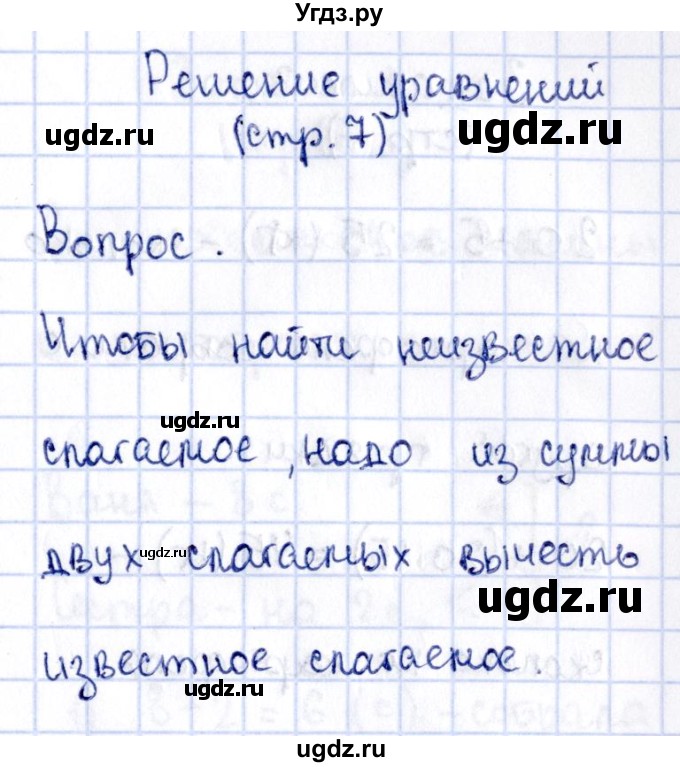 Угдз.ру
Решение уравнений
ugdz.ru (стр. 7) ugdz.ru
Вопрос.
Чтобы найти неизвестное
ugdz.ru
слагаемое, надо из суммы
двух ugdz.ru слагаемых вычесть
ugdz.ru
известное слагаемое.
ugdz.ru
ugdz.ru